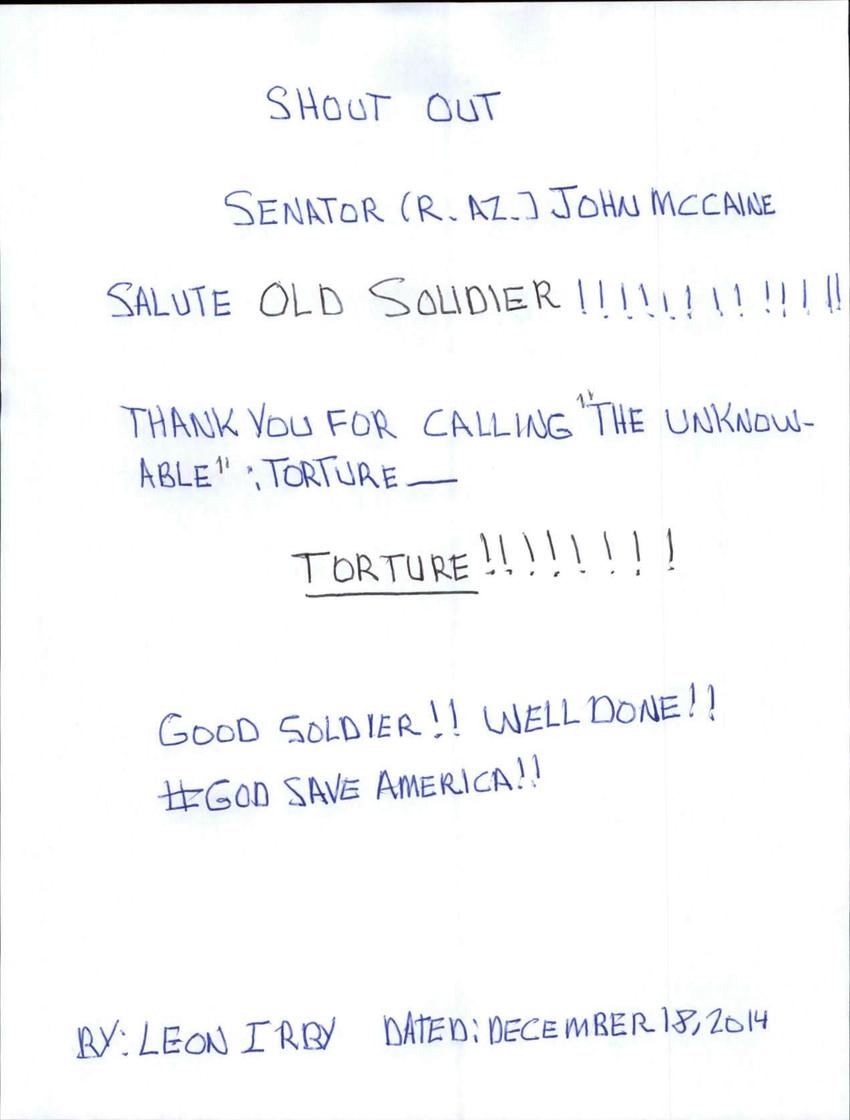 SHOUT OUT
SENATOR (R. AZ.) JOHN MCCAINE
SALUTE OLD SOLIDIER !!!!!!!!!!!!!!!
THANK YOU FOR CALLING "THE UNKNOW-
ABLE" ; TORTURE —
TORTURE!!!!!!!!!
GOOD SOLDIER!! WELL DONE!!
#GOD SAVE AMERICA!!
BY: LEON IRBY DATED: DECEMBER 18, 2014